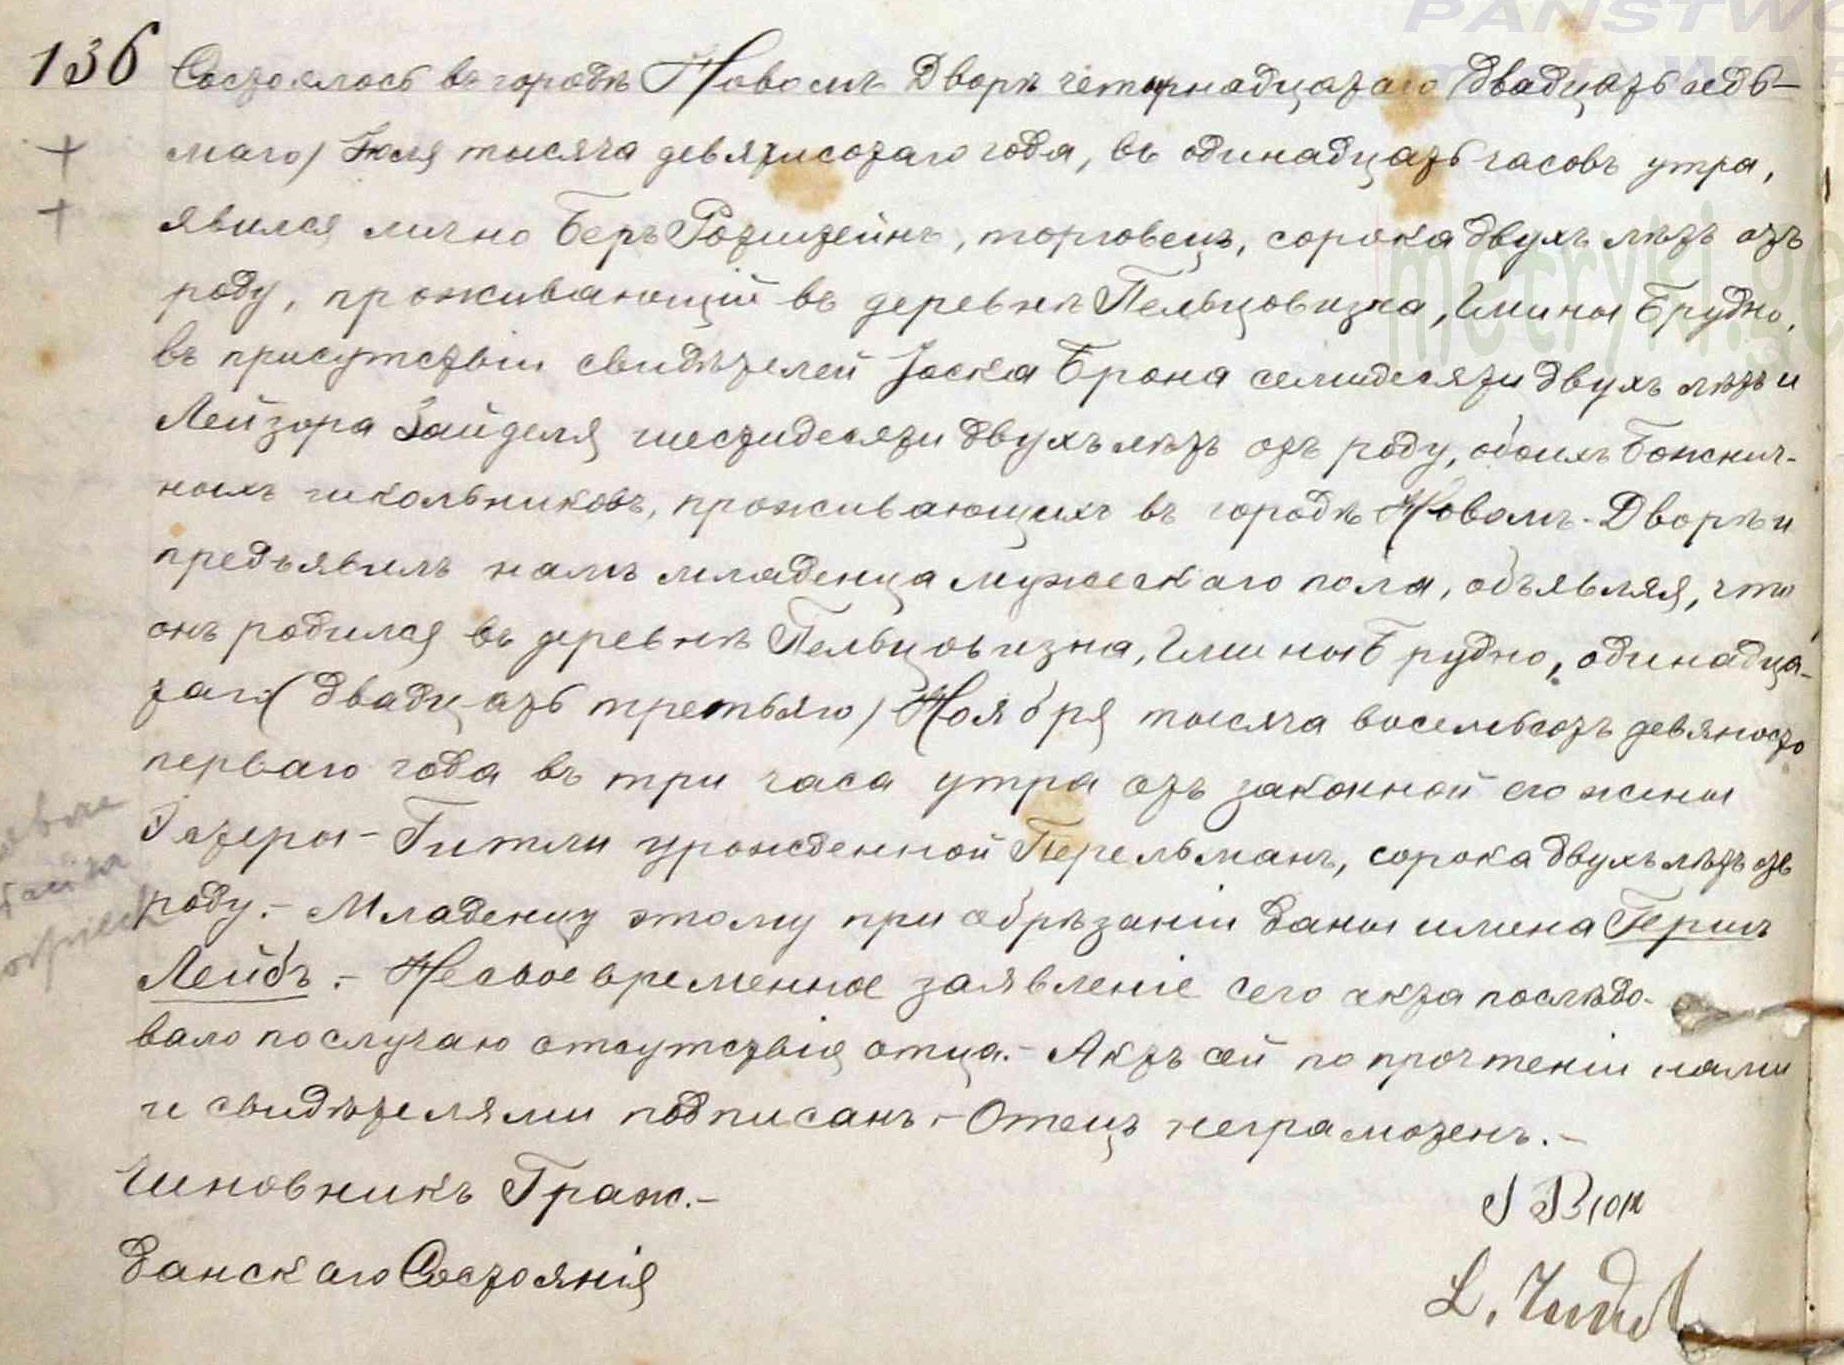 136 Состоялось въ городѣ Новомъ Дворѣ четырнадцатаго (двадцать седь-
маго) Іюля тысяча девятисотаго года, въ одинадцать часовъ утра,
явился лично Беръ Ротштейнъ, торговецъ, сорока двухъ лѣтъ отъ
роду, проживающій въ деревнѣ Пельцовизна, Гмины Брудно,
въ присутствіи свидѣтелей Іоска Брона семидесяти двухъ лѣтъ и
Лейзора Зайделя шестидесяти двухъ лѣтъ отъ роду, обоихъ божнич-
ныхъ школьниковъ, проживающихъ въ городѣ Новомъ-Дворѣ и
предъявилъ намъ младенца мужескаго пола, объявляя, что
онъ родился въ деревнѣ Пельцовизна, Гмины Брудно, одинадца-
таго (двадцать третьяго) Ноября тысяча восемьсотъ девяносто
перваго года въ три часа утра отъ законной его жены
Эстеры-Гитли урожденной Перельманъ, сорока двухъ лѣтъ отъ
роду.- Младенцу этому при обрѣзаніи даны имена Гершъ
Лейбъ.- Несвоевременное заявленіе сего акта послѣдо-
вало по случаю отсутствія отца.- Актъ сей по прочтеніи нами
и свидѣтелями подписанъ.- Отецъ неграмотенъ.-
Чиновникъ Граж.-
данскаго Состоянія
J Bron
L.
PAŃSTWO
metryki.ge